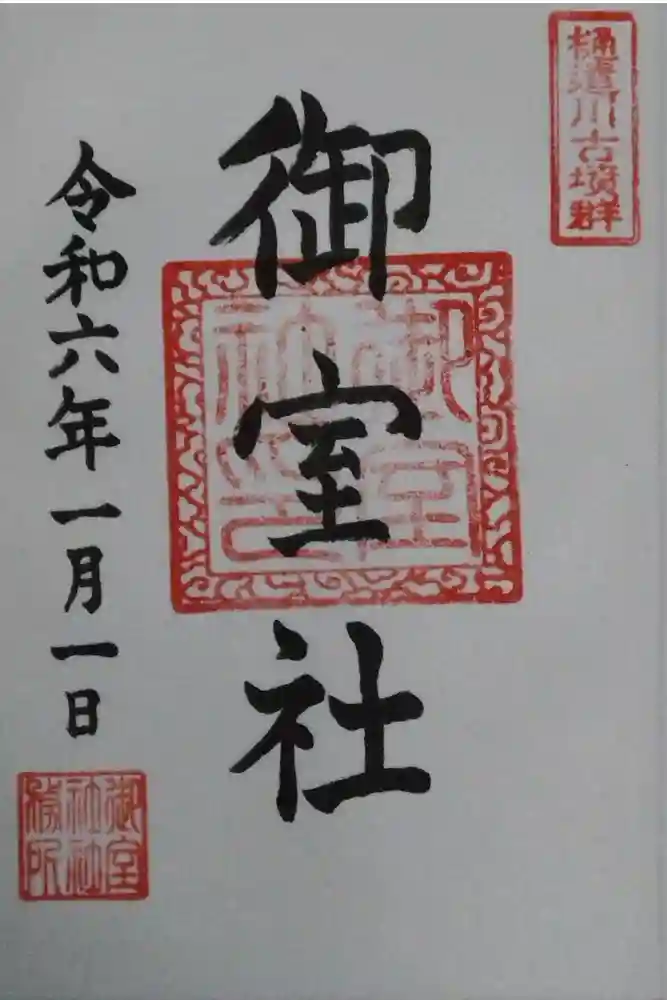 樋遣川古墳群
御室社
御室社印
令和六年一月一日
御室社社務所